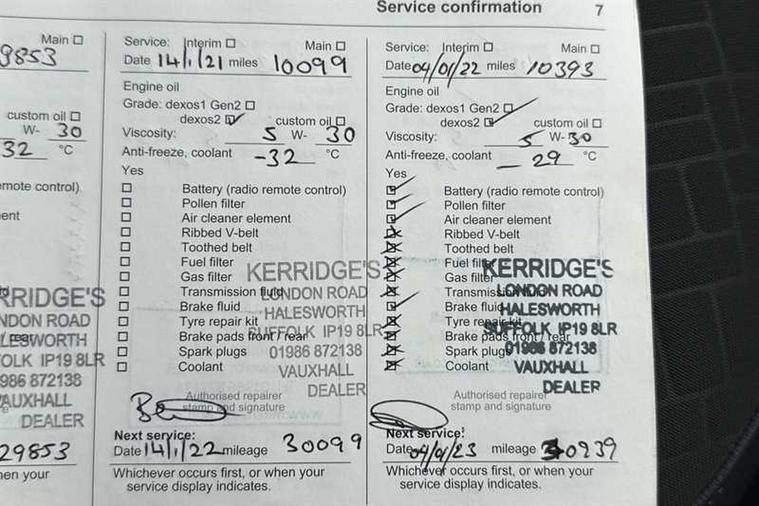 Service confirmation 7
Main ☐
9853
custom oil ☐
W- 30
32 °C
emote control)
ent
RRIDGE'S
NDON ROAD
LESWORTH
OLK IP19 8LR
986 872138
AUXHALL
DEALER
29853
hen your
Service: Interim ☐ Main ☐
Date 14/1/21 miles 10099
Engine oil
Grade: dexos1 Gen2 ☐
dexos2 ☑ custom oil ☐
Viscosity: 5 W- 30
Anti-freeze, coolant -32 °C
Yes
☐ Battery (radio remote control)
☐ Pollen filter
☐ Air cleaner element
☐ Ribbed V-belt
☐ Toothed belt
☐ Fuel filter
☐ Gas filter
☐ Transmission fluid
☐ Brake fluid
☐ Tyre repair kit
☐ Brake pads front / rear
☐ Spark plugs
☐ Coolant
KERRIDGE'S
LONDON ROAD
HALESWORTH
SUFFOLK IP19 8LR
01986 872138
VAUXHALL
DEALER
Authorised repairer
stamp and signature
Next service:
Date 14/1/22 mileage 30099
Whichever occurs first, or when your
service display indicates.
Service: Interim ☐ Main ☐
Date 04/01/22 miles 10393
Engine oil
Grade: dexos1 Gen2 ☐
dexos2 ☑ custom oil ☐
Viscosity: 5 W- 30
Anti-freeze, coolant - 29 °C
Yes
Battery (radio remote control)
Pollen filter
Air cleaner element
Ribbed V-belt
Toothed belt
Fuel filter
Gas filter
Transmission
Brake fluid
Tyre repair kit
Brake pads front / rear
Spark plugs
Coolant
KERRIDGE'S
LONDON ROAD
HALESWORTH
SUFFOLK IP19 8LR
01986 872138
VAUXHALL
DEALER
Authorised repairer
stamp and signature
Next service:
Date 04/01/23 mileage
Whichever occurs first, or when your
service display indicates.